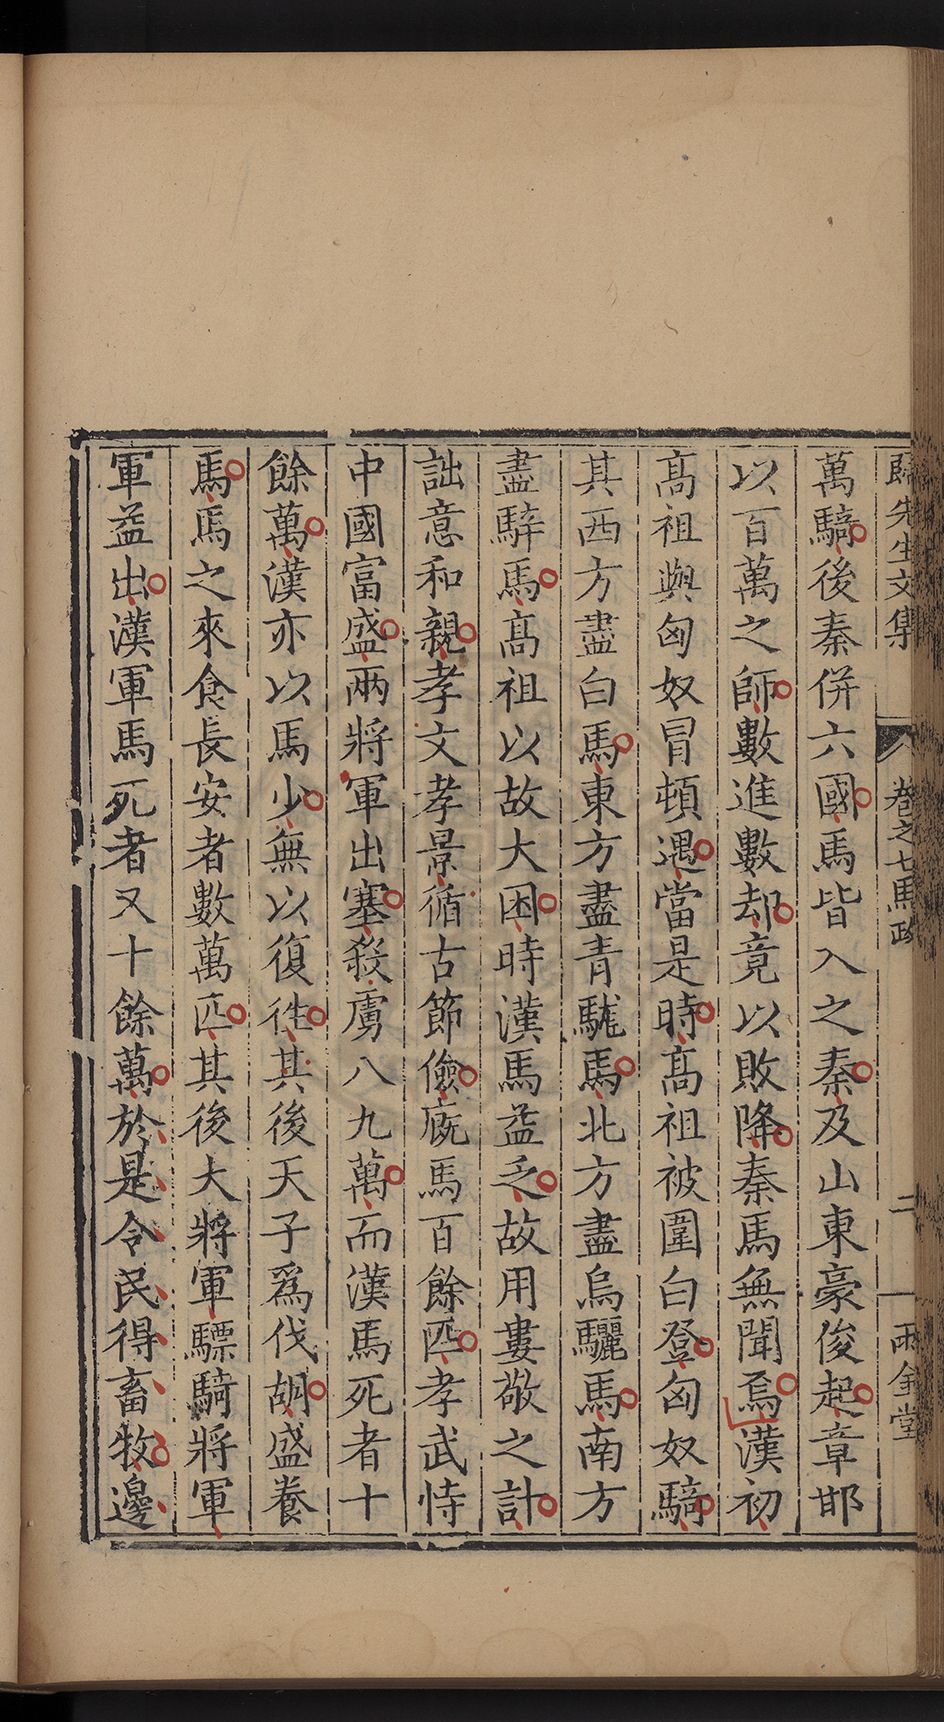 歸先生文集 卷之七馬政 二 雨金堂
萬騎後秦併六國馬皆入之秦及山東豪俊起章邯
以百萬之師數進數却竟以敗降秦馬無聞焉漢初
髙祖與匈奴冒頓遇當是時髙祖被圍白登匈奴騎
其西方盡白馬東方盡青駹馬北方盡烏驪馬南方
盡騂馬髙祖以故大困時漢馬益乏故用婁敬之計
詘意和親孝文孝景循古節儉廐馬百餘匹孝武恃
中國富盛兩將軍出塞殺虜八九萬而漢馬死者十
餘萬漢亦以馬少無以復徃其後天子爲伐胡盛養
馬馬之來食長安者數萬匹其後大將軍驃騎將軍
軍益出漢軍馬死者又十餘萬於是令民得畜牧邊